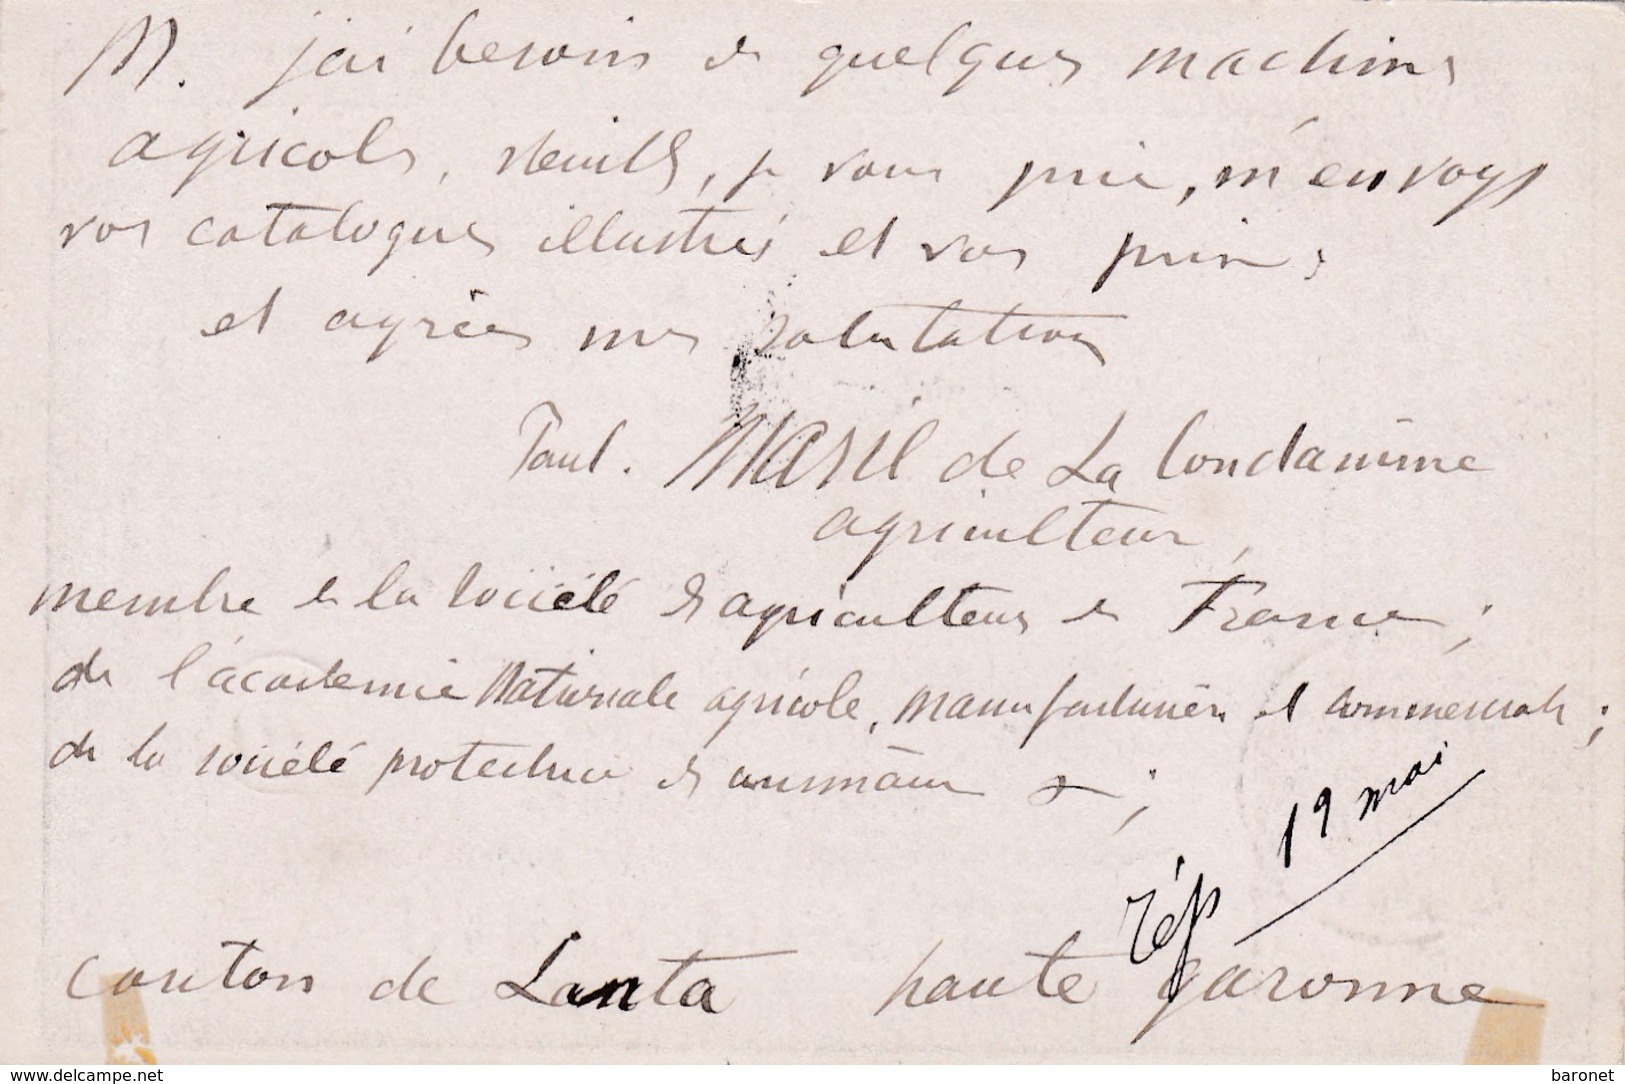 M. j'ai besoin de quelques machines
agricoles, veuillez, je vous prie, m'envoyer
vos catalogues illustrés et vos prix,
et agréez mes salutations
Paul. Masil de La Condamine
agriculteur,
membre de la Société des agriculteurs de France;
de l'académie Nationale agricole, manufacturière et commerciale;
de la société protectrice des animaux &;
rép 19 mai
canton de Lanta haute garonne
delcampe.net
baronet